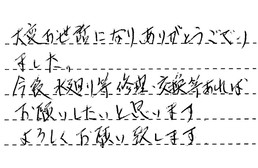 大変お世話になりありがとうござい
ました。
今後水廻り等修理、交換等あれば
お願いしたいと思います。
よろしくお願い致します。